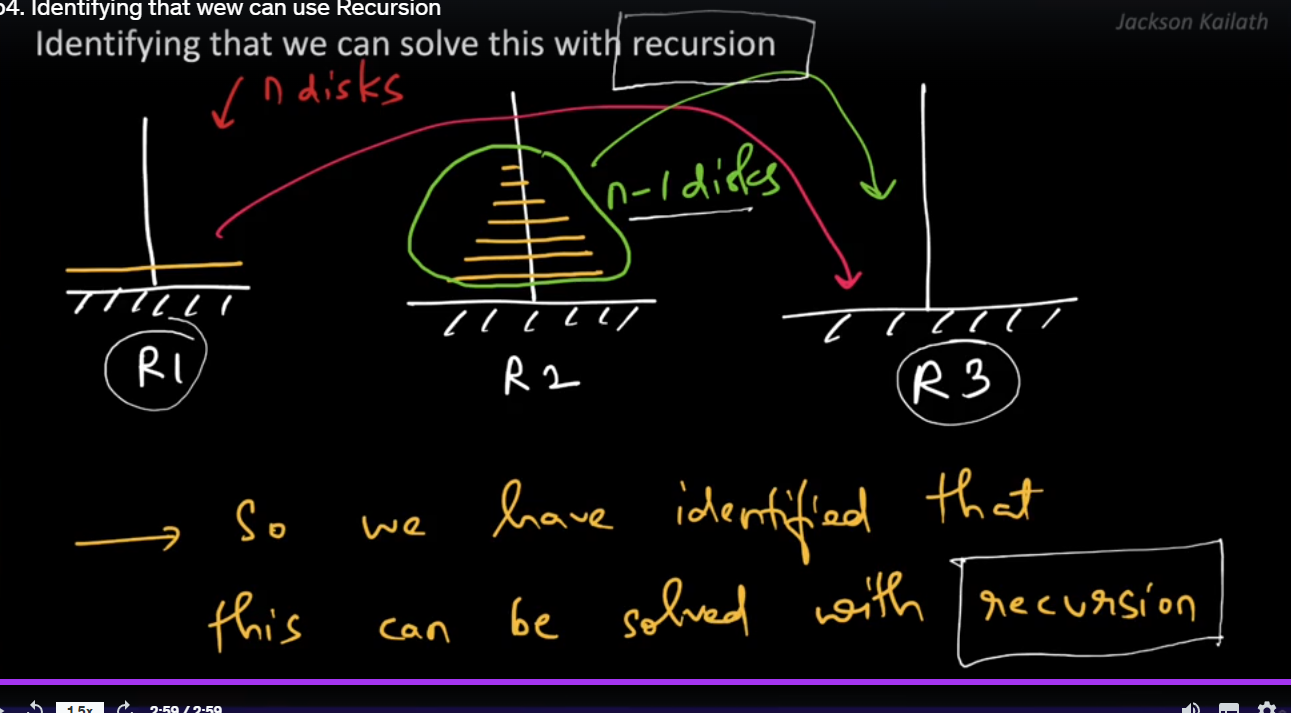 54. Identifying that wew can use Recursion
Jackson Kailath
Identifying that we can solve this with recursion
n disks
n-1 disks
R1
R2
R3
So we have identified that
this can be solved with recursion
1.5x 2:59 / 2:59